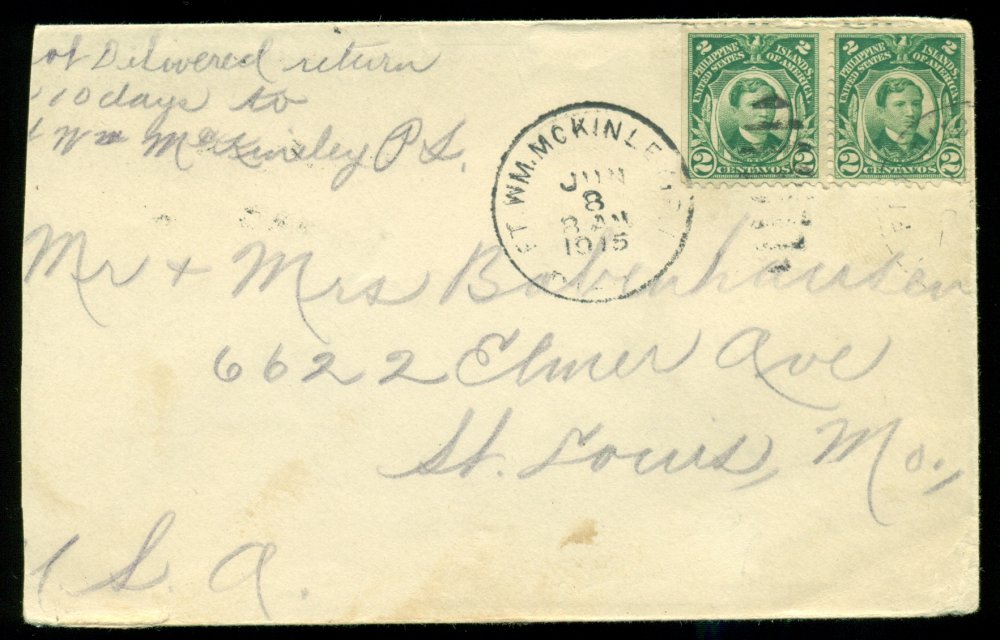 ot Delivered return
10 days to
Wm McKinley P. I.
FT. WM. MCKINLE
JUN
8
8 AM
1915
2 PHILIPPINE ISLANDS, 2
UNITED STATES OF AMERICA.
2 CENTAVOS 2
2 PHILIPPINE ISLANDS, 2
UNITED STATES OF AMERICA.
2 CENTAVOS 2
Mr + Mrs Bobenhausen
6622 Elmer Ave
St. Louis, Mo.,
S. A.